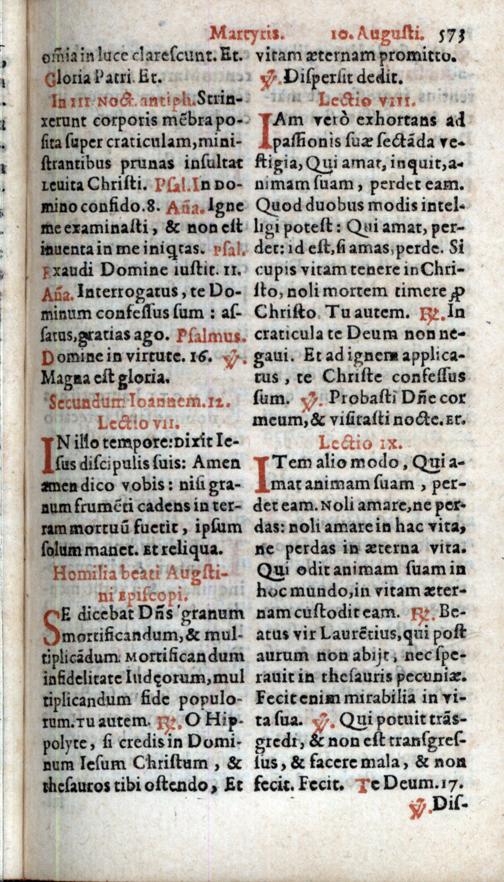 Martyris. 10. Augusti. 573
om̃ia in luce clarescunt. Et.
Gloria Patri. Et.
In III Noct. antiph. Strin-
xerunt corporis mẽbra po-
sita super craticulam, mini-
strantibus prunas insultat
Leuita Christi. Psal. In Do-
mino confido. 8. Aña. Igne
me examinasti, & non est
inuenta in me iniq̃tas. Psal.
Exaudi Domine iustit. 11.
Aña. Interrogatus, te Do-
minum confessus sum : as-
satus, gratias ago. Psalmus.
Domine in virtute. 16. ℣.
Magna est gloria.
Secundum Ioannem. 12.
Lectio vii.
IN illo tempore: Dixit Ie-
sus discipulis suis: Amen
amen dico vobis : nisi gra-
num frumẽti cadens in ter-
ram mortuũ fuerit, ipsum
solum manet. Et reliqua.
Homilia beati Augsti-
ni Episcopi.
SE dicebat Dñs granum
mortificandum, & mul-
tiplicãdum. Mortificandum
infidelitate Iudęorum, mul
tiplicandum fide populo-
rum. Tu autem. ℟. O Hip-
polyte, si credis in Domi-
num Iesum Christum, &
thesauros tibi ostendo, Et
vitam æternam promitto.
℣. Dispersit dedit.
Lectio viii.
IAm verò exhortans ad
passionis suæ sectãda ve-
stigia, Qui amat, inquit, a-
nimam suam, perdet eam.
Quod duobus modis intel-
ligi potest : Qui amat, per-
det: id est, si amas, perde. Si
cupis vitam tenere in Chri-
sto, noli mortem timere ꝓ
Christo. Tu autem. ℟. In
craticula te Deum non ne-
gaui. Et ad ignem applica-
tus, te Christe confessus
sum. ℣. Probasti Dñe cor
meum, & visitasti nocte. Et.
Lectio ix.
ITem alio modo, Qui a-
mat animam suam, per-
det eam. Noli amare, ne per-
das: noli amare in hac vita,
ne perdas in æterna vita.
Qui odit animam suam in
hoc mundo, in vitam æter-
nam custodit eam. ℟. Be-
atus vir Laurẽtius, qui post
aurum non abijt, nec spe-
rauit in thesauris pecuniæ.
Fecit enim mirabilia in vi-
ta sua. ℣. Qui potuit trãs-
gredi, & non est transgres-
sus, & facere mala, & non
fecit. Fecit. Te Deum. 17.
℣. Dis-